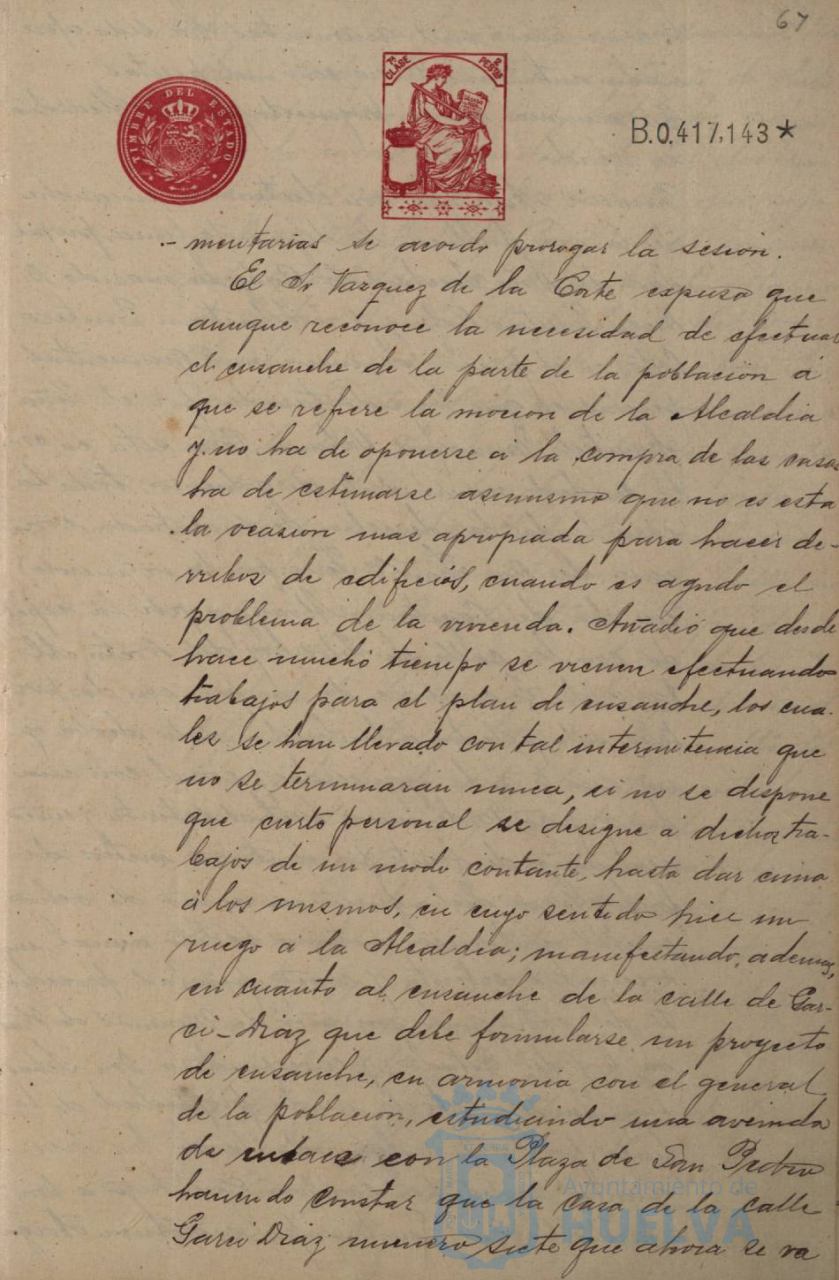 67
TIMBRE DEL ESTADO
7ª CLASE 2 PESTAS
B.0.417,143*
- mentarias se acordó prorogar la sesión.
El Sr Vazquez de la Corte expuso que
aunque reconoce la necesidad de efectuar
el ensanche de la parte de la población á
que se refiere la mocion de la Alcaldia
y no ha de oponerse á la compra de las casas
ha de estimarse asimismo que no es esta
la ocasión mas apropiada para hacer de-
rribos de edificiós, cuando es agudo el
problema de la vivienda. Añadió que desde
hace mucho tiempo se vienen efectuando
trabajos para el plan de ensanche, los cua-
les se han llevado con tal intermitencia que
no se terminaran nunca, si no se dispone
que cierto personal se designe á dichos tra-
bajos de un modo contante, hasta dar cima
á los mismos, en cuyo sentido hice un
ruego á la Alcaldia; manifestando, ademas,
en cuanto al ensanche de la calle de Gar-
ci-Diaz que debe formularse un proyecto
de ensanche, en armonia con el general
de la población, estudiando una avenida
de enlace con la Plaza de San Pedro
haciendo constar que la casa de la calle
Garci Diaz numero siete que ahora se va
Ayuntamiento de
HUELVA